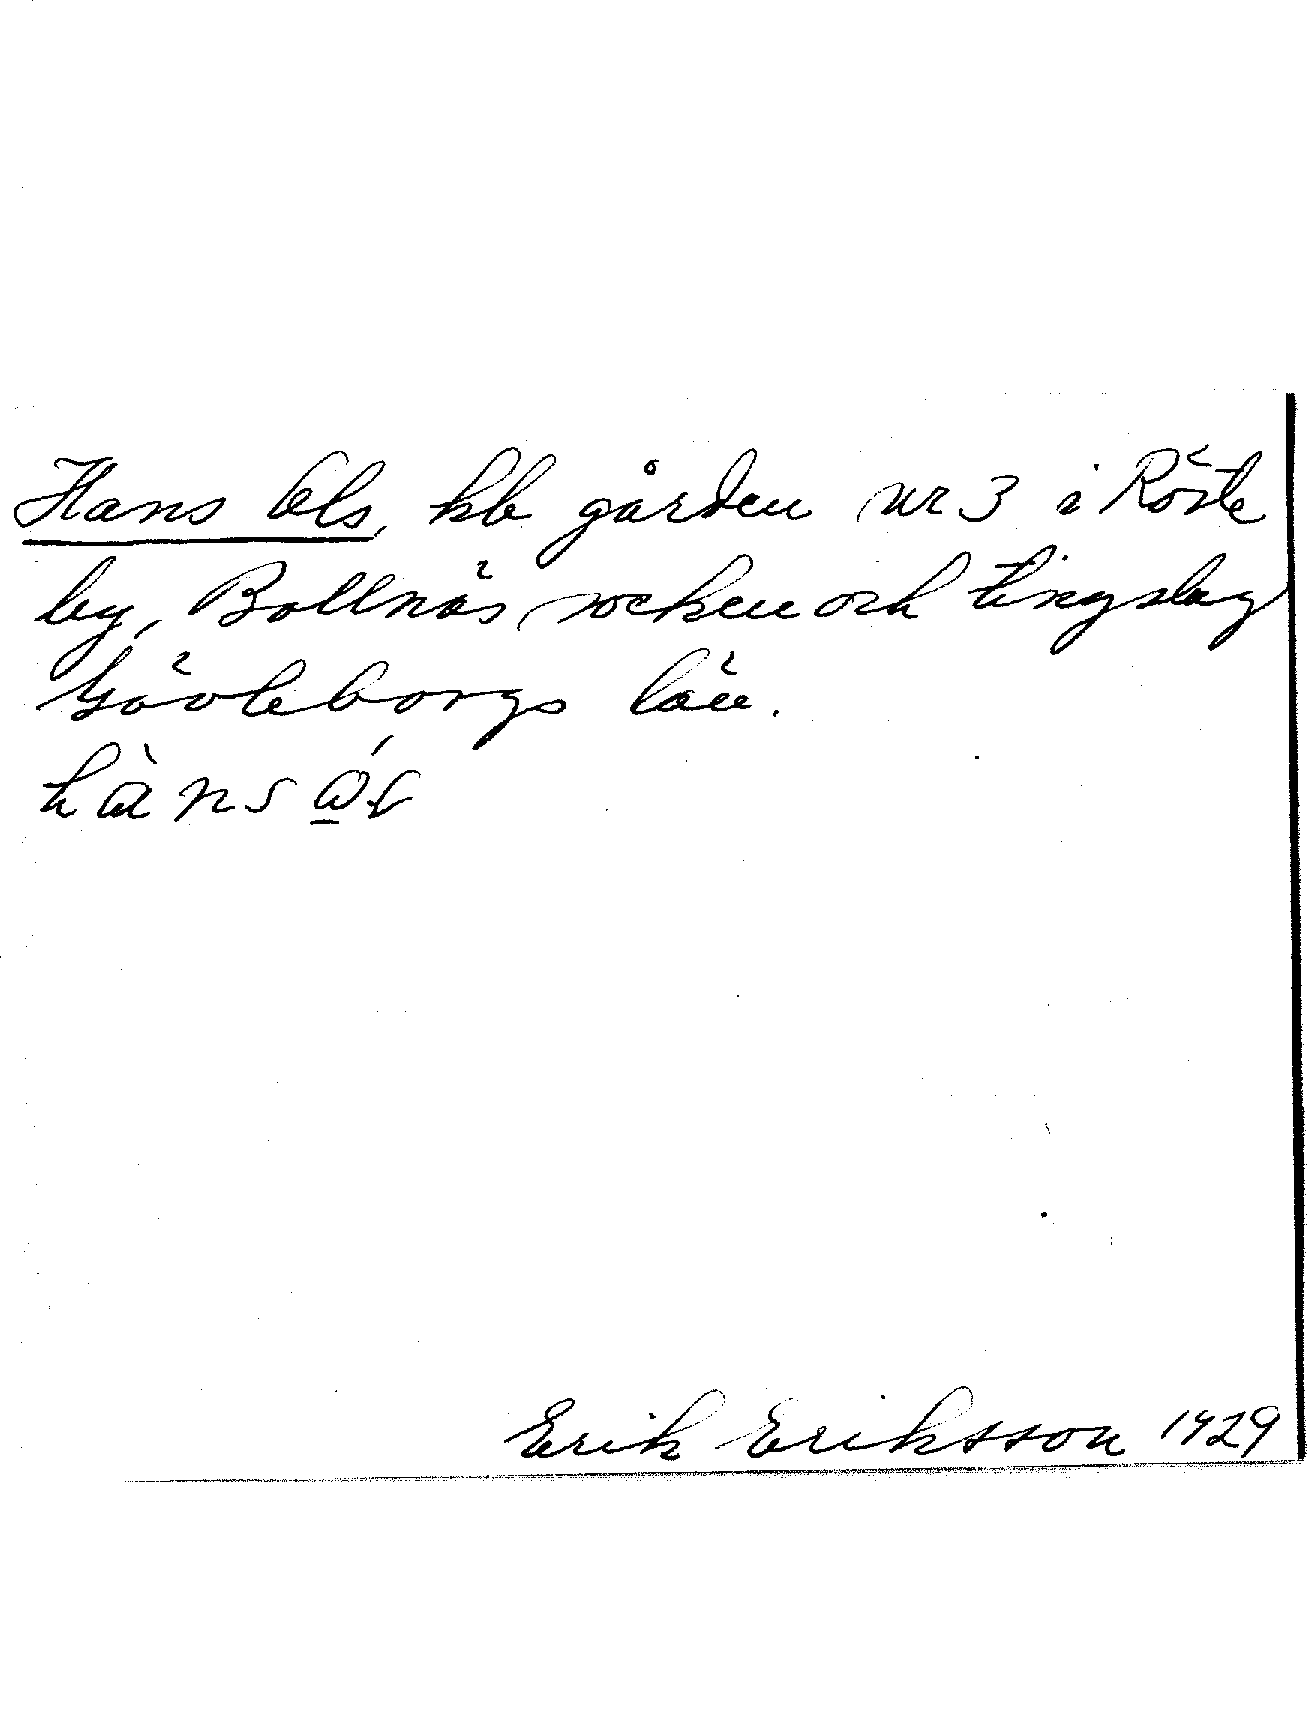 Hans Ols, kb gården nr 3 i Röste
by, Bollnäs socken och tingslag
Gävleborgs län.
Erik Eriksson 1929